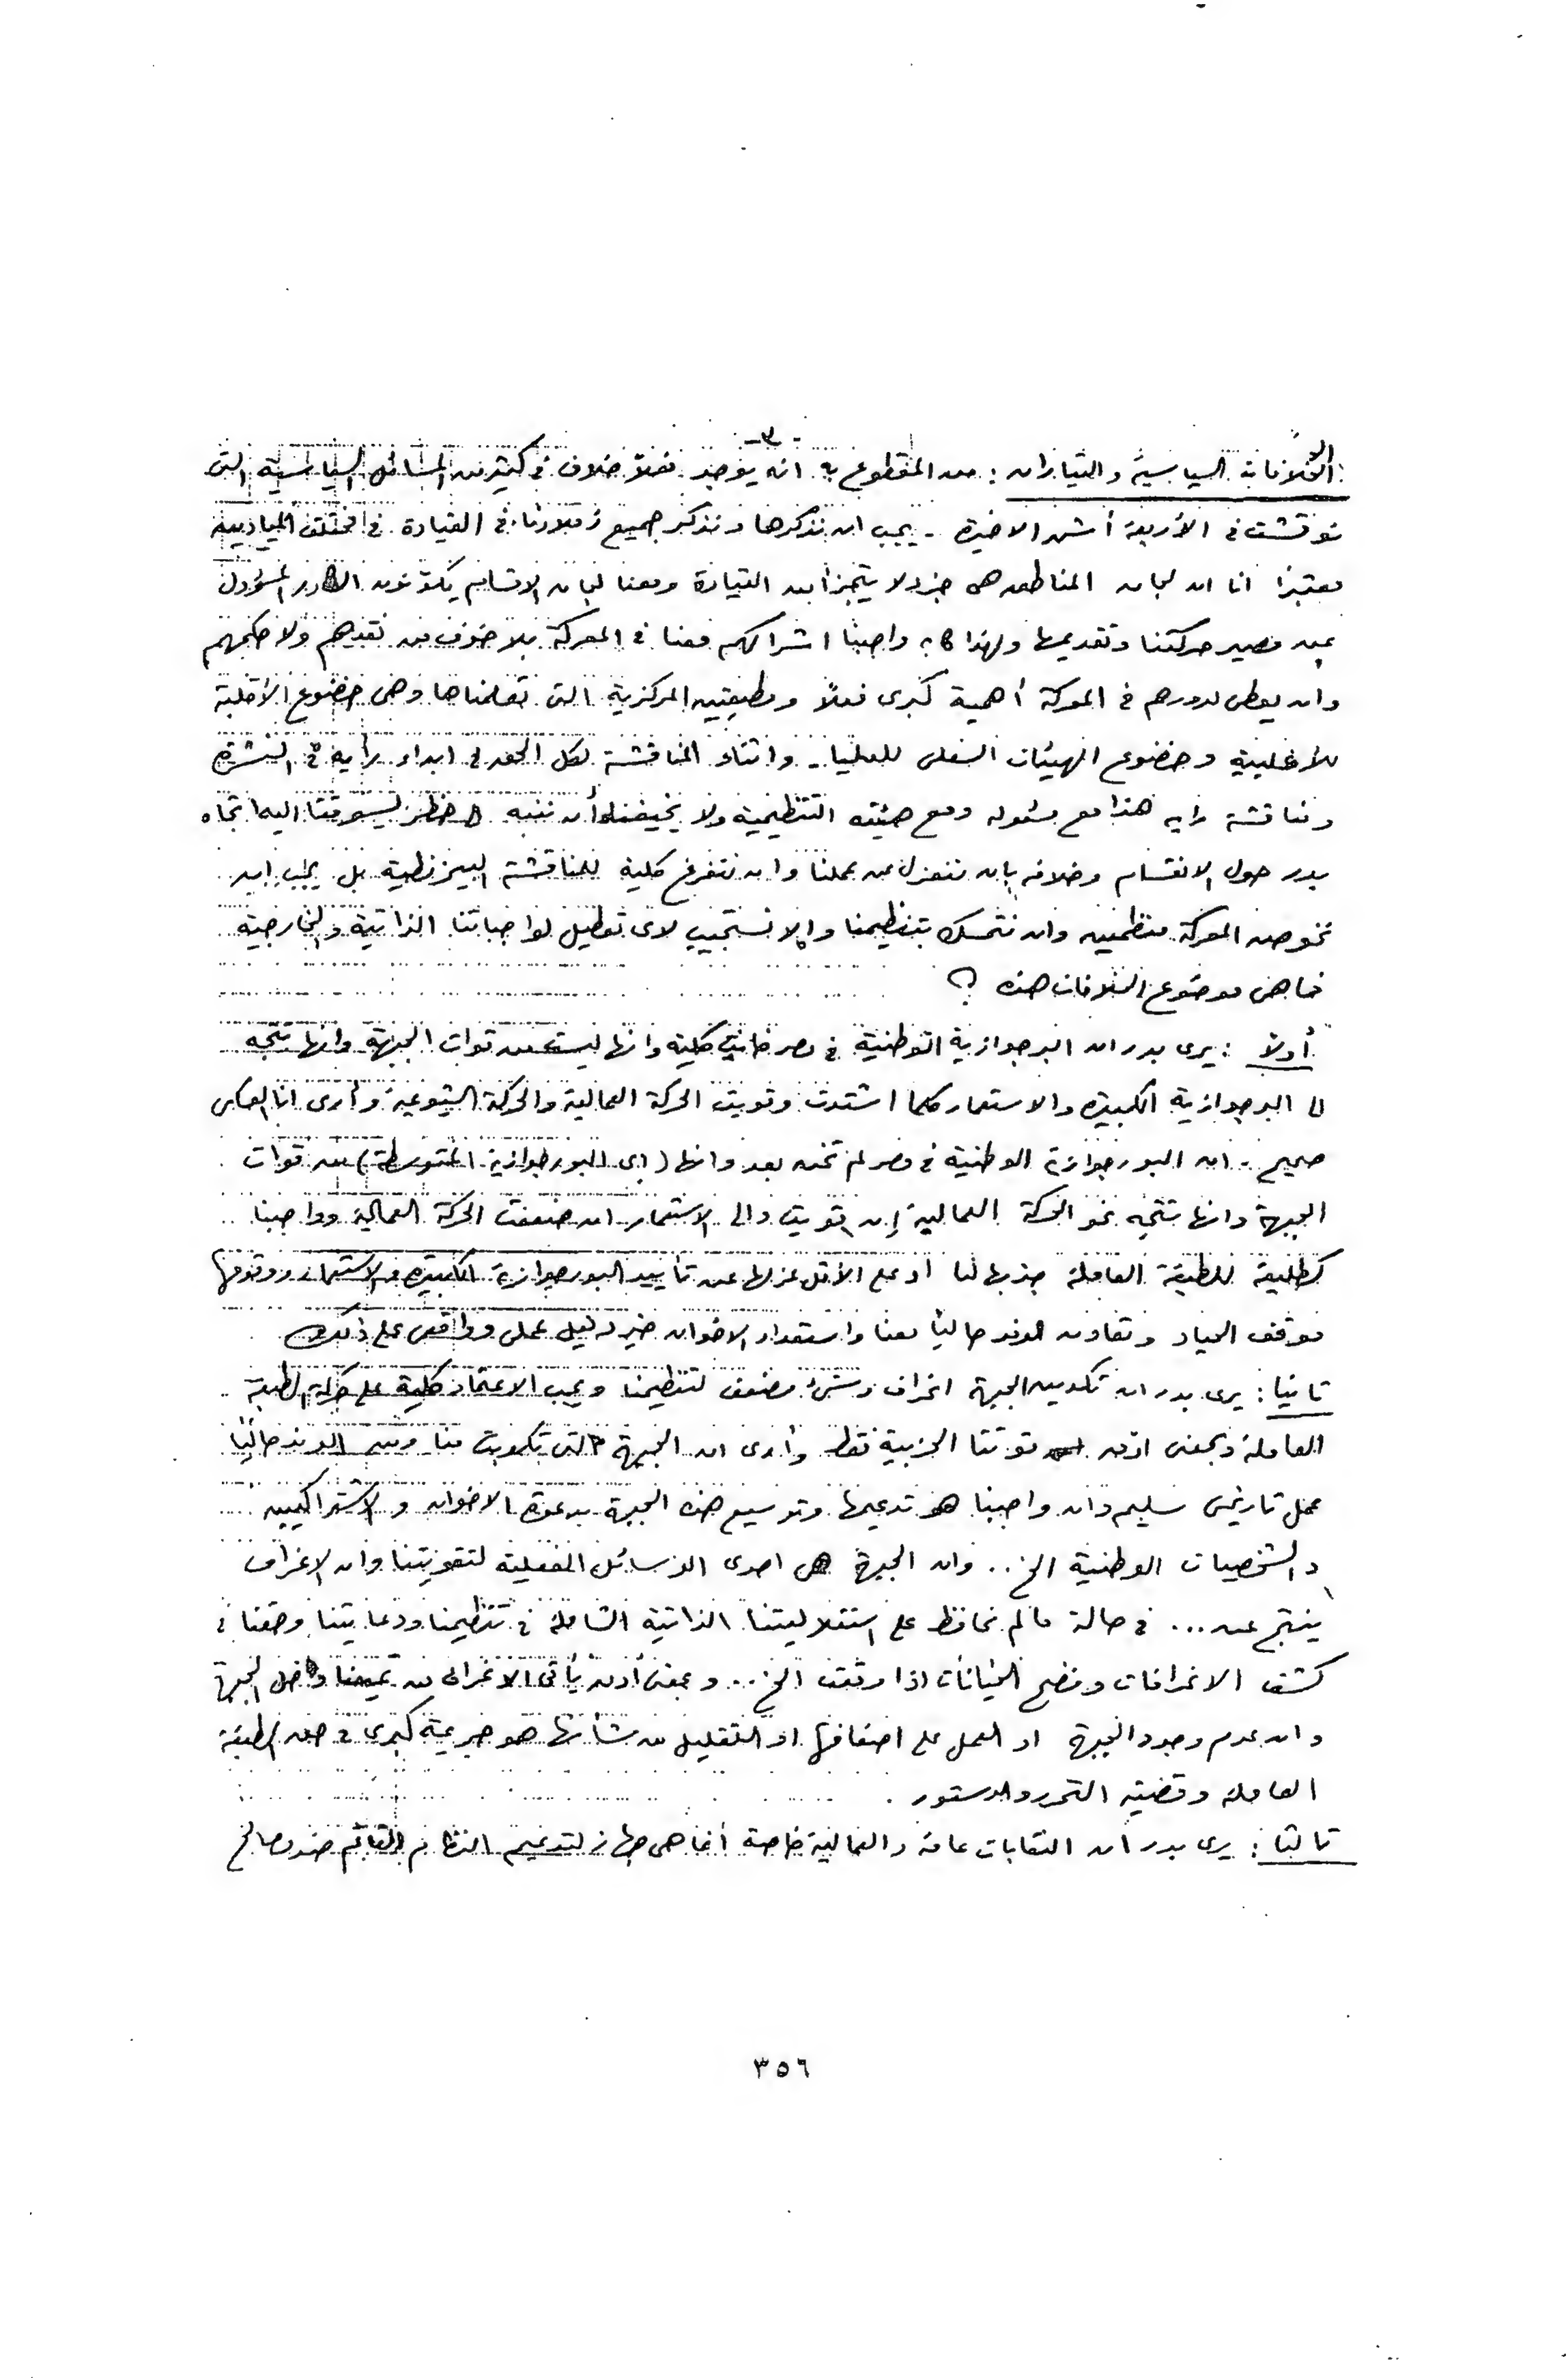 -٣-
الخلافات السياسية والتيارات : من المقطوع به انه يوجد فعلاً خلاف في كثير من المسائل السياسية التى
نوقشت فى الأربعة أشهر الاخيرة - يجب ان نذكرها ونذكر جميع زملاءنا فى القيادة فى مختلف الميادين
معتبرا انا ان لجان المناطق هى جزء لا يتجزأ من القيادة ومعنا لجان الاقسام يكونون الكادر المسؤول
عن مصير حركتنا وتقديمها ولهذا كان واجبنا اشراكهم معنا فى المعركة بلا خوف من نقدهم ولا حكمهم
وان يعطى لدورهم فى المعركة أهمية كبرى فعلاً ومطبقين المركزية التى تعلمناها وهى خضوع الأقلية
للأغلبية وخضوع الهيئات السفلى للعليا - واثناء المناقشة لكل الحق فى ابداء رأيه فى النشرة
ومناقشة رايه هذا مع مسئوله ومع هيئته التنظيمية ولا يخيفنا أن ننبه لخطر يسوقنا اليه اتجاه
بدر حول الانقسام وخلافه بان ننعزل عن عملنا وان نتفرغ كلية للمناقشة البيزنطية بل يجب ان
نخوض المعركة منظمين وان نتمسك بتنظيمنا والا نستجيب لاى تعطيل لواجباتنا الذاتية والخارجية
فما هى موضوع الخلافات هذه ؟
أولاً : يرى بدر ان البرجوازية الوطنية فى مصر خانت كلية وانها ليست من قوات الجبهة وانها تتجه
الى البرجوازية الكبيرة والاستعمار كلما اشتدت وقويت الحركة العمالية والحركة الشيوعية وأرى انا العكس
صحيح - ان البورجوازية الوطنية فى مصر لم تخن بعد وانها (اى البورجوازية المتوسطة) من قوات
الجبهة وانها تتجه نحو الحركة العمالية إن قويت والى الاستعمار ان ضعفت الحركة العمالية وواجبنا
كطليعة للطبقة العاملة جذبها لنا أو على الأقل عزلها عن تأييد البورجوازية الكبيرة والاستعمار ووقوفها
موقف الحياد وتعاون الوفد حالياً معنا واستعداد الاخوان خير دليل عملى وواقعى على ذلك
ثانيا : يرى بدر ان تكوين الجبهة انحراف وشئ مضعف لتنظيمنا ويجب الاعتماد كلية على حركة الطبقة
العاملة وبمعنى ادق قوتنا الحزبية فقط وأرى ان الجبهة التى تكونت منا ومن الوفد حالياً
عمل تاريخى سليم وان واجبنا هو تدعيمها وتوسيع هذه الجبهة بدعوة الاخوان والاشتراكيين
والشخصيات الوطنية الخ .. وان الجبهة هى احدى الوسائل الفعلية لتقويتنا وان الانحراف
ينتج عن ... فى حالة ما لم نحافظ على استقلاليتنا الذاتية الشاملة فى تنظيمنا ودعايتنا وحقنا فى
كشف الانحرافات وفضح الخيانات اذا وقعت الخ .. وبمعنى أدق يأتى الانحراف من تميعنا داخل الجبهة
وان عدم وجود الجبهة او العمل على اضعافها او التقليل من شأنها هو جريمة كبرى فى حق الطبقة
العاملة وقضية التحرر والدستور .
ثالثا : يرى بدر أن النقابات عامة والعمالية خاصة أنما هى جهاز لتدعيم النظام القائم ضد مصالح
٣٥٦